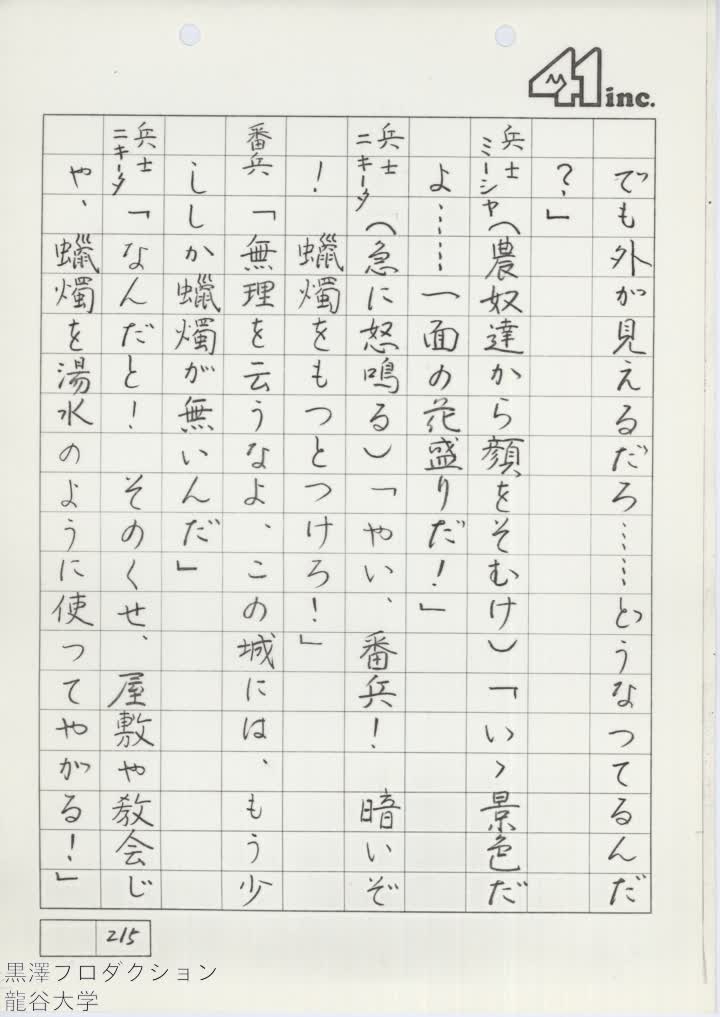 41 inc.
でも外が見えるだろ……どうなつてるんだ
？」
兵士ミーシャ（農奴達から顔をそむけ）「いゝ景色だ
よ……一面の花盛りだ！」
兵士ニキータ（急に怒鳴る）「やい、番兵！　暗いぞ
！　蠟燭をもつとつけろ！」
番兵「無理を云うなよ、この城には、もう少
ししか蠟燭が無いんだ」
兵士ニキータ「なんだと！　そのくせ、屋敷や教会じ
や、蠟燭を湯水のように使つてやがる！」
215
黒澤プロダクション
龍谷大学